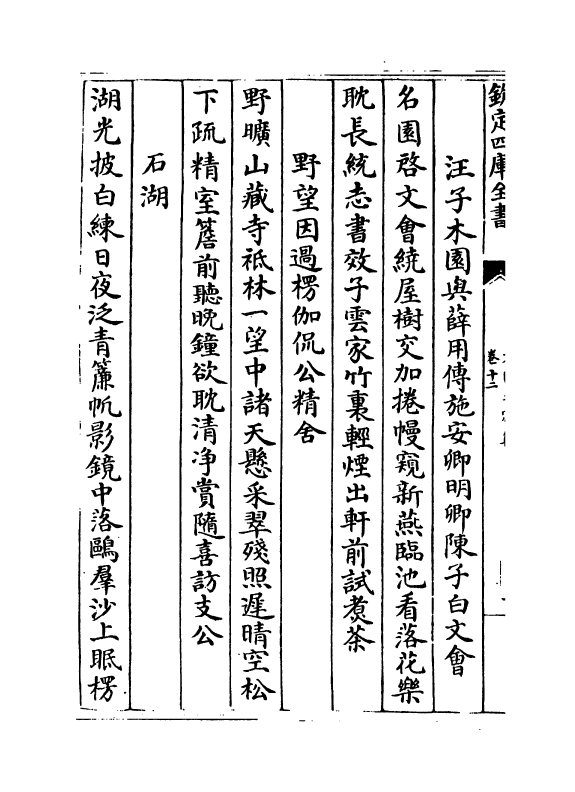 欽定四庫全書
卷十二
汪子木園與薛用傅施安卿明卿陳子白文會
名園啓文會繞屋樹交加捲幔窺新燕臨池看落花樂
耽長統志書效子雲家竹裏輕煙出軒前試煑茶
野望因過楞伽侃公精舍
野曠山藏寺祗林一望中諸天懸采翠殘照遲晴空松
下疏精室簷前聽晚鐘欲耽清净賞隨喜訪支公
石湖
湖光披白練日夜泛青簾帆影鏡中落鷗羣沙上眠楞